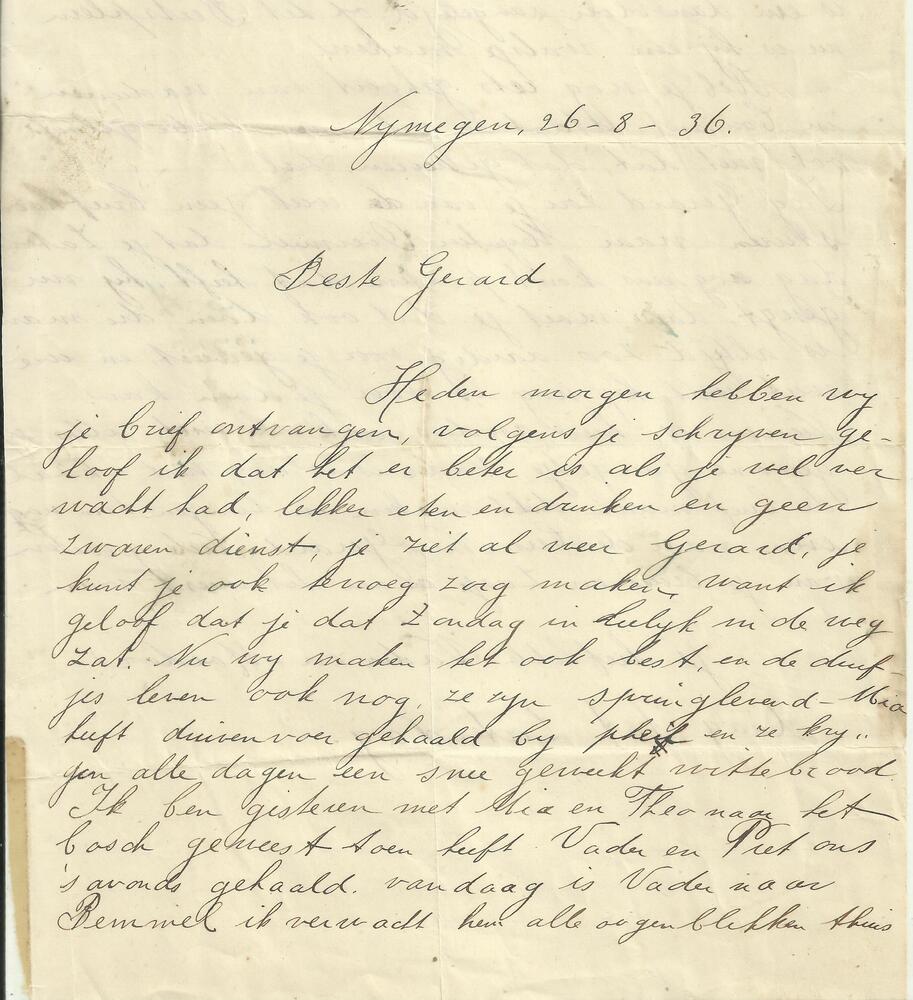 Nymegen, 26-8-36.
Beste Gerard
Heden morgen hebben wy
je brief ontvangen, volgens je schryven ge-
loof ik dat het er beter is als je wel ver
wacht had, lekker eten en drinken en geen
zwaren dienst, je ziet al weer Gerard, je
kunt je ook te vroeg zorg maken, want ik
geloof dat je dat Zondag in Huelyk in de weg
zat. Nu wy maken het ook best, en de duif-
jes leven ook nog, ze zyn springlevend - Mia
heeft duivenvoer gehaald by en ze kry„
gen alle dagen een snee geweekt wittebrood.
Ik ben gisteren met Mia en Theo naar het
bosch geweest toen heeft Vader en Piet ons
's avonds gehaald. vandaag is Vader naar
Bemmel ik verwacht hem alle oogenblikken thuis